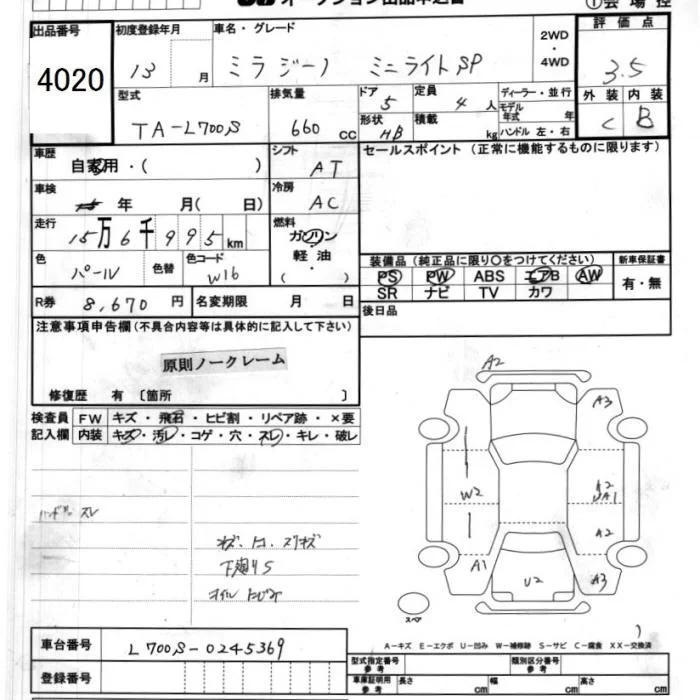 オークション出品申込書 ①会場控
出品番号 初度登録年月 車名・グレード 2WD・4WD 評価点
4020 13 月 ミラジーノ ミニライトSP 3.5
型式 排気量 ドア 5 定員 4 人 ディーラー・並行 外装 内装
TA-L700S 660 cc 形状 HB 積載 kg モデル年式 年 ハンドル 左・右 C B
車歴 シフト セールスポイント (正常に機能するものに限ります)
自家用・( ) AT
車検 冷房
年 月( 日) AC
走行 燃料
15万6千995km ガソリン・軽油・( )
色 パール 色替 色コード W16
装備品 (純正品に限り○をつけてください) 新車保証書
PS PW ABS エアB AW 有・無
SR ナビ TV カワ
R券 8,670 円 名変期限 月 日
後日品
注意事項申告欄 (不具合内容等は具体的に記入して下さい)
原則ノークレーム
修復歴 有 〔箇所 〕
検査員 FW キズ・飛石・ヒビ割・リペア跡・×要
記入欄 内装 キズ・汚レ・コゲ・穴・スレ・キレ・破レ
ハンドル スレ
下廻りS
A2
A3
W2
A2
A1
A2
A1
U2
A3
スペア
A-キズ E-エクボ U-凹み W-補修跡 S-サビ C-腐食 XX-交換済
車台番号 L700S-0245369
型式指定番号 参考 類別区分番号 参考
登録番号 車庫証明用 参考 長さ cm 幅 cm 高さ cm